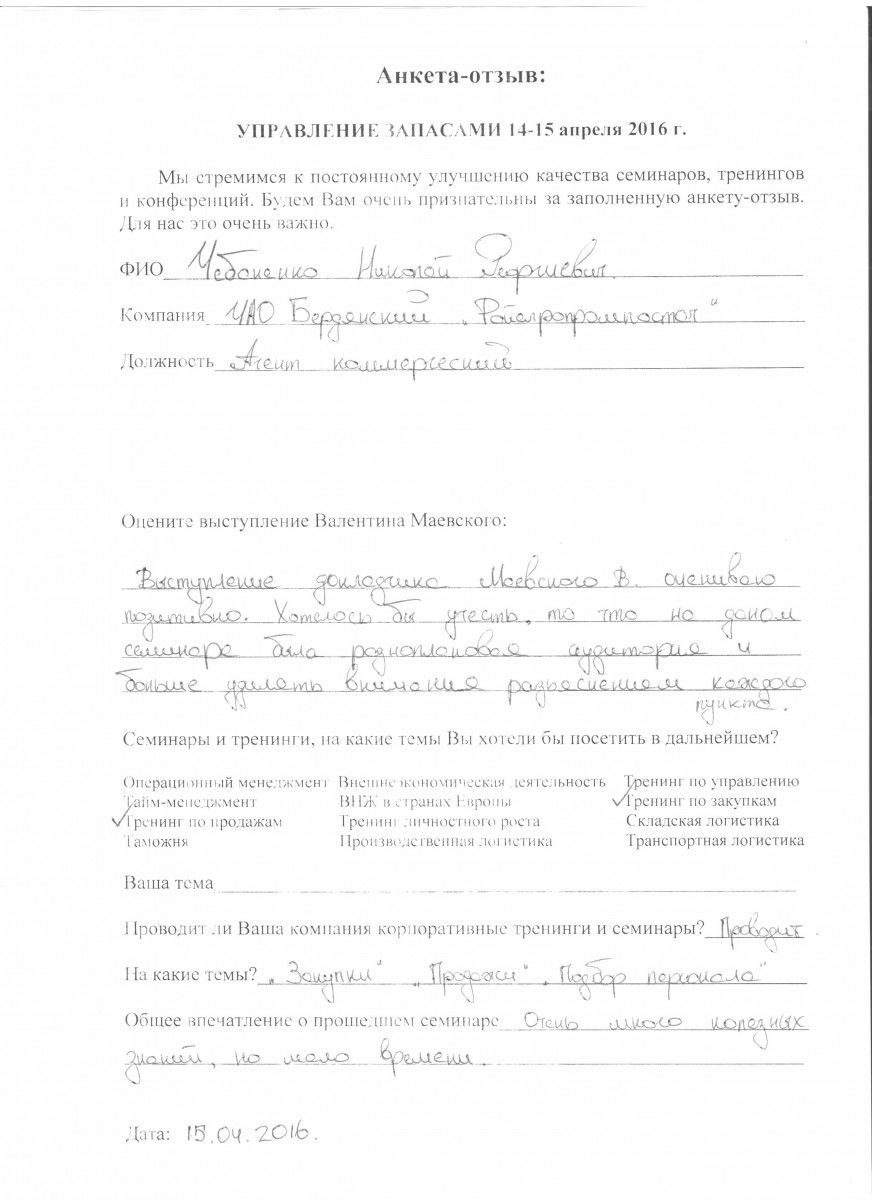 Анкета-отзыв:
УПРАВЛЕНИЕ ЗАПАСАМИ 14-15 апреля 2016 г.
Мы стремимся к постоянному улучшению качества семинаров, тренингов
и конференций. Будем Вам очень признательны за заполненную анкету-отзыв.
Для нас это очень важно.
ФИО Чебоненко Николой
Компания ЧАО Бердянский
Должность Агент коммерческий
Оцените выступление Валентина Маевского:
Выступление докладчика Маевского В. оцениваю
позитивно. Хотелось бы учесть, то что на даном
семинаре была разноплановая аудитория и
больше уделять внимания разъяснением каждого
пункта.
Семинары и тренинги, на какие темы Вы хотели бы посетить в дальнейшем?
Операционный менеджмент Внешнеэкономическая деятельность Тренинг по управлению
Тайм-менеджмент ВНЖ в странах Европы ✓Тренинг по закупкам
✓Тренинг по продажам Тренинг личностного роста Складская логистика
Таможня Производственная логистика Транспортная логистика
Ваша тема
Проводит ли Ваша компания корпоративные тренинги и семинары? Проводит.
На какие темы? „Закупки" „Продажи" „Подбор персонала"
Общее впечатление о прошедшем семинаре Очень много полезных
знаний, но мало времени.
Дата: 15.04.2016.